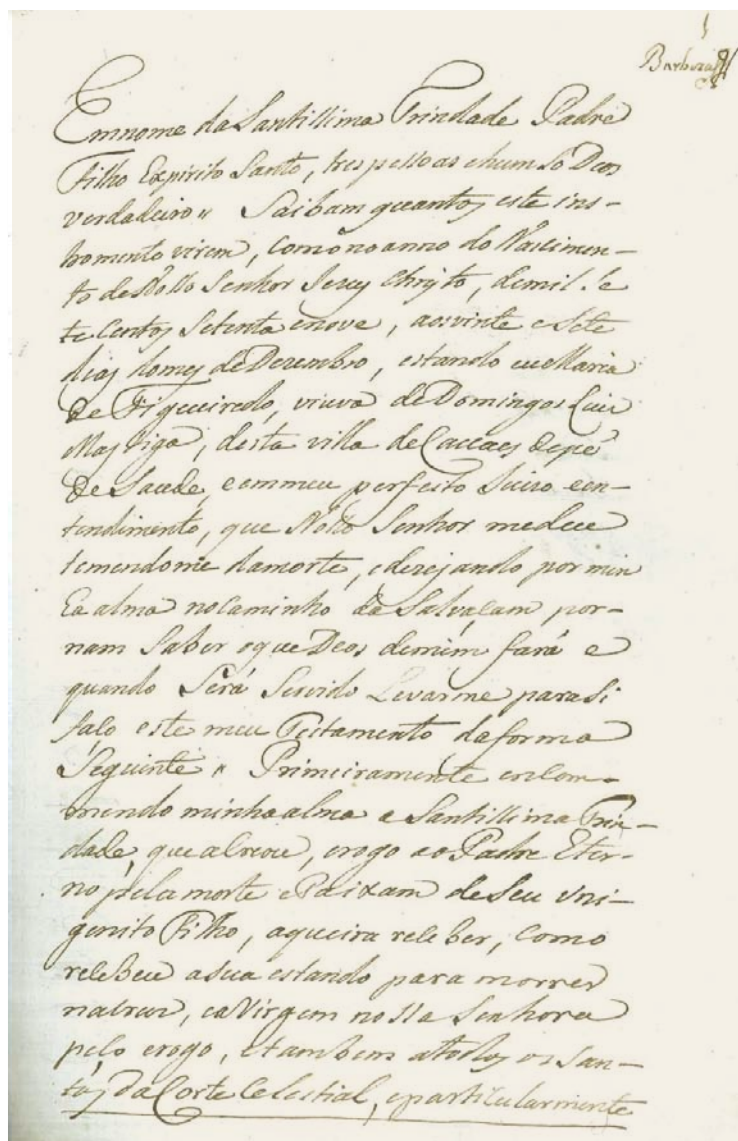 1
Barboza
Emnome da Santissima Trindade Padre
Filho Expirito Santo, tres pessoas ehum Só Deos
verdadeiro " Saibam quantos este ins-
tromento virem, como no anno do Nascimen-
to de Nosso Senhor Jesus Christo, demil. Se
te Centos Setenta enove, aosvinte e Sete
dias domes de Dezembro, estando eu Maria
de Figueiredo, viuva de Domingos Luis
desta villa de
de Saude, eemmeu perfeito Juizo een-
tendimento, que Nosso Senhor medeu
temendome damorte, edezejando por min
ha alma nocaminho da Salvaçam, por-
nam Saber oque Deos demim fará e
quando Será Servido Levarme parasi
faço este meu Testamento daforma
Seguinte " Primeiramente encom-
mendo minhaalma a Santissima Trin-
dade, queacreou, erogo ao Padre Eter-
no pelamorte ePaixam deSeu Uni-
genito Filho, aqueira receber, Como
recebeu asua estando para morrer
nacruz, eaVirgem nossa Senhora
peço erogo, etambem atodos os San-
tos da Corte Celestial, eparticularmente